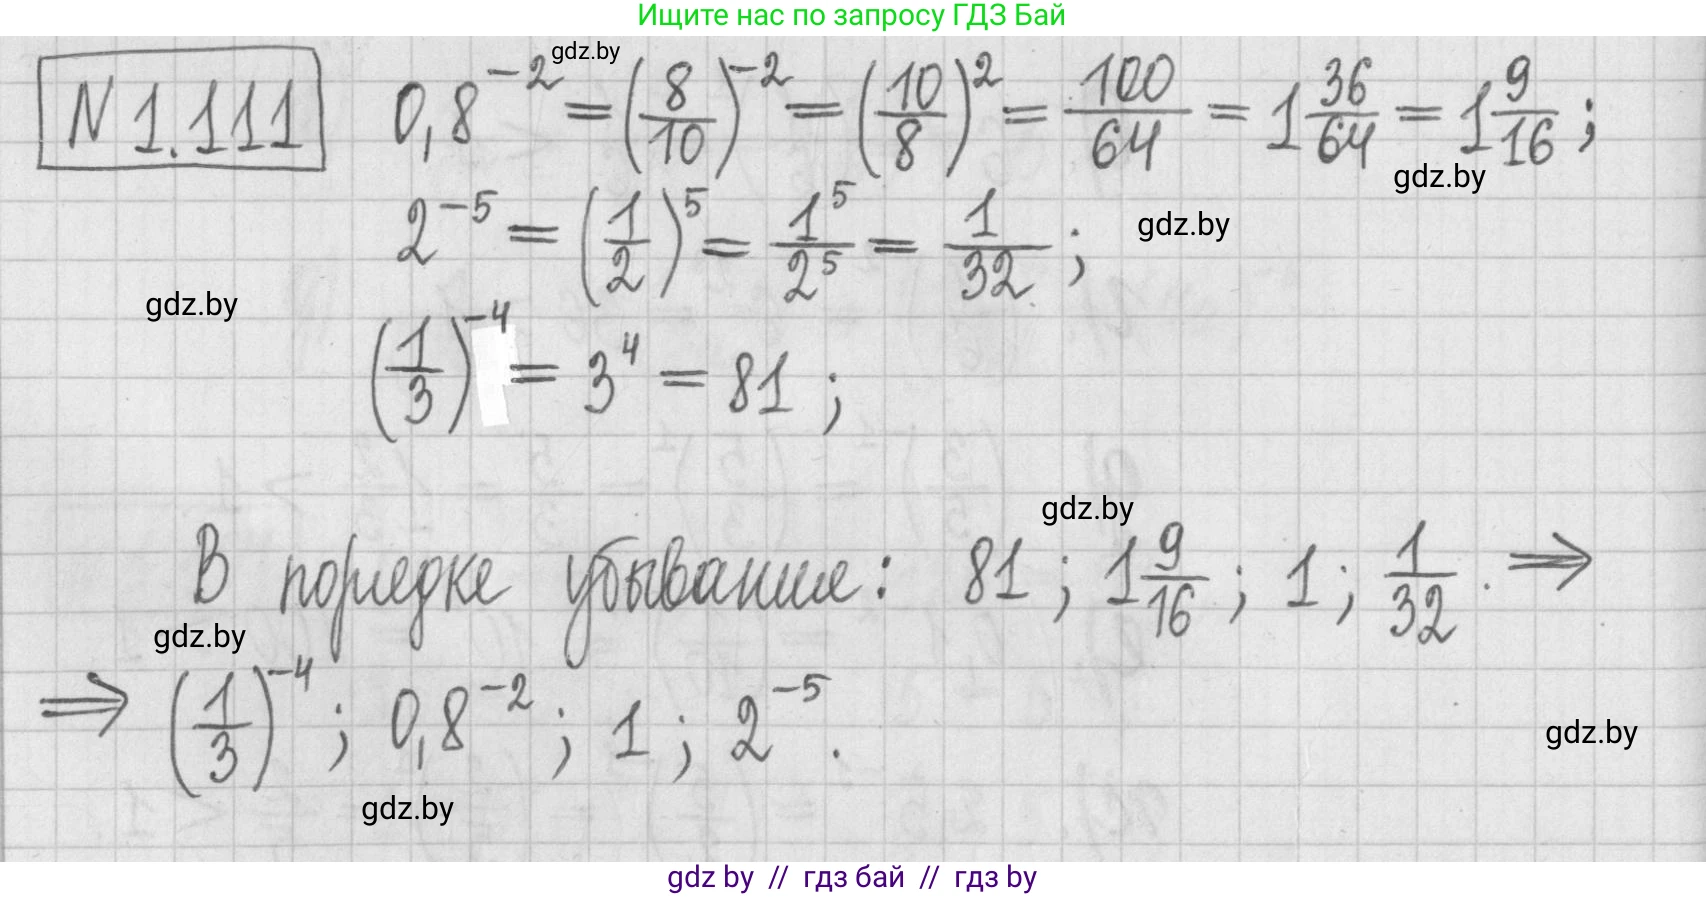 Ищите нас по запросу ГДЗ Бай
gdz.by
N 1.111 0,8^{-2} = (8/10)^{-2} = (10/8)^2 = 100/64 = 1 36/64 = 1 9/16 ;
gdz.by
2^{-5} = (1/2)^5 = 1^5/2^5 = 1/32 ;
gdz.by
gdz.by
(1/3)^{-4} = 3^4 = 81 ;
gdz.by
В порядке убывания: 81 ; 1 9/16 ; 1 ; 1/32 . ⇒
gdz.by
⇒ (1/3)^{-4} ; 0,8^{-2} ; 1 ; 2^{-5} .
gdz.by
gdz.by
gdz by // гдз бай // гдз by